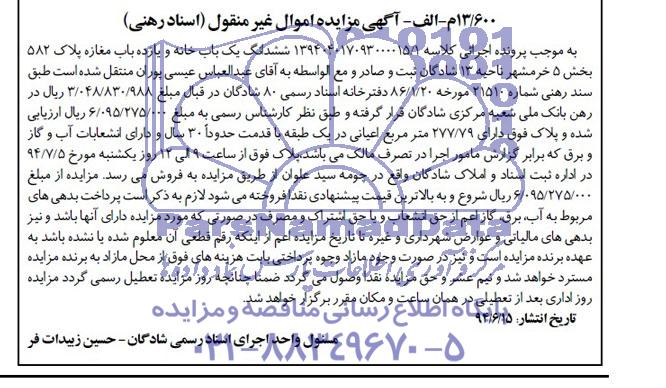 ۱۳/۶۰۰م-الف- آگهی مزایده اموال غیر منقول (اسناد رهنی)
به موجب پرونده اجرائی کلاسه ۱۳۹۴۰۴۰۱۷۰۹۳۰۰۰۰۱۵/۱ ششدانگ یک باب خانه و یازده باب مغازه پلاک ۵۸۲
بخش ۵ خرمشهر ناحیه ۱۳ شادگان ثبت و صادر و مع الواسطه به آقای عبدالعباس عیسی پوران منتقل شده است طبق
سند رهنی شماره ۲۱۵۱۰ مورخه ۸۶/۱/۲۰ دفترخانه اسناد رسمی ۸۰ شادگان در قبال مبلغ ۳/۰۴۸/۸۳۰/۹۸۸ ریال در
رهن بانک ملی شعبه مرکزی شادگان قرار گرفته و طبق نظر کارشناس رسمی به مبلغ ۶/۰۹۵/۲۷۵/۰۰۰ ریال ارزیابی
شده و پلاک فوق دارای ۲۷۷/۷۹ متر مربع اعیانی در یک طبقه با قدمت حدوداً ۳۰ سال و دارای انشعابات آب و گاز
و برق که برابر گزارش مامور اجرا در تصرف مالک می باشد.پلاک فوق از ساعت ۹ الی ۱۲ روز یکشنبه مورخ ۹۴/۷/۵
در اداره ثبت اسناد و املاک شادگان واقع در حومه سید علوان از طریق مزایده به فروش می رسد. مزایده از مبلغ
۶/۰۹۵/۲۷۵/۰۰۰ ریال شروع و به بالاترین قیمت پیشنهادی نقدا فروخته می شود لازم به ذکر است پرداخت بدهی های
مربوط به آب، برق، گاز اعم از حق انشعاب و یا حق اشتراک و مصرف در صورتی که مورد مزایده دارای آنها باشد و نیز
بدهی های مالیاتی و عوارض شهرداری و غیره تا تاریخ مزایده اعم از اینکه رقم قطعی آن معلوم شده یا نشده باشد به
عهده برنده مزایده است و نیز در صورت وجود مازاد وجوه پرداختی بابت هزینه های فوق از محل مازاد به برنده مزایده
مسترد خواهد شد و نیم عشر و حق مزایده نقدا وصول می گردد ضمنا چنانچه روز مزایده تعطیل رسمی گردد مزایده
روز اداری بعد از تعطیلی در همان ساعت و مکان مقرر برگزار خواهد شد.
تاریخ انتشار: ۹۴/۶/۱۵
مسئول واحد اجرای اسناد رسمی شادگان - حسین زبیدات فر
ParsNamadData
پایگاه اطلاع رسانی مناقصه و مزایده
۰۲۱-۸۸۳۴۹۶۷۰-۵